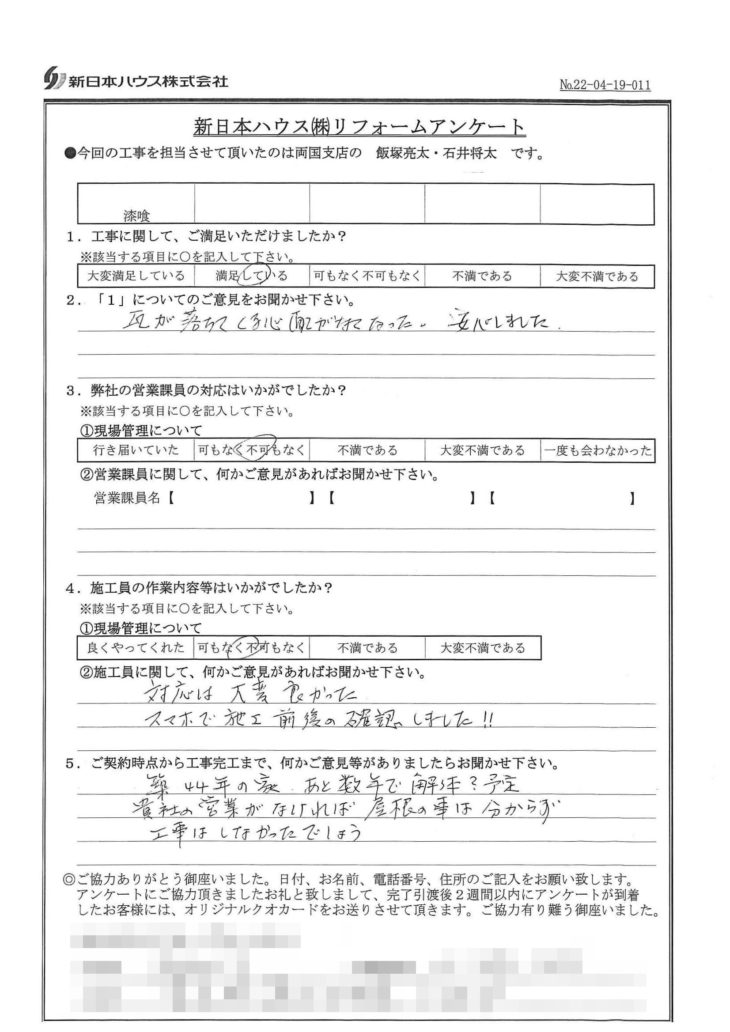 新日本ハウス株式会社
No.22-04-19-011
新日本ハウス㈱リフォームアンケート
●今回の工事を担当させて頂いたのは両国支店の 飯塚亮太・石井将太 です。
漆喰
1．工事に関して、ご満足いただけましたか？
※該当する項目に○を記入して下さい。
大変満足している 満足している 可もなく不可もなく 不満である 大変不満である
2．「1」についてのご意見をお聞かせ下さい。
瓦が落ちてくる心配がなくなった。安心しました.
3．弊社の営業課員の対応はいかがでしたか？
※該当する項目に○を記入して下さい。
①現場管理について
行き届いていた 可もなく不可もなく 不満である 大変不満である 一度も会わなかった
②営業課員に関して、何かご意見があればお聞かせ下さい。
営業課員名【 】【 】【 】
4．施工員の作業内容等はいかがでしたか？
※該当する項目に○を記入して下さい。
①現場管理について
良くやってくれた 可もなく不可もなく 不満である 大変不満である
②施工員に関して、何かご意見があればお聞かせ下さい。
対応は大変良かった
スマホで施工前後の確認しました!!
5．ご契約時点から工事完工まで、何かご意見等がありましたらお聞かせ下さい。
築44年の家 あと数年で解体？予定
貴社の営業がなければ屋根の事は分からず
工事はしなかったでしょう
◎ご協力ありがとう御座いました。日付、お名前、電話番号、住所のご記入をお願い致します。
アンケートにご協力頂きましたお礼と致しまして、完了引渡後2週間以内にアンケートが到着
したお客様には、オリジナルクオカードをお送りさせて頂きます。ご協力有り難う御座いました。